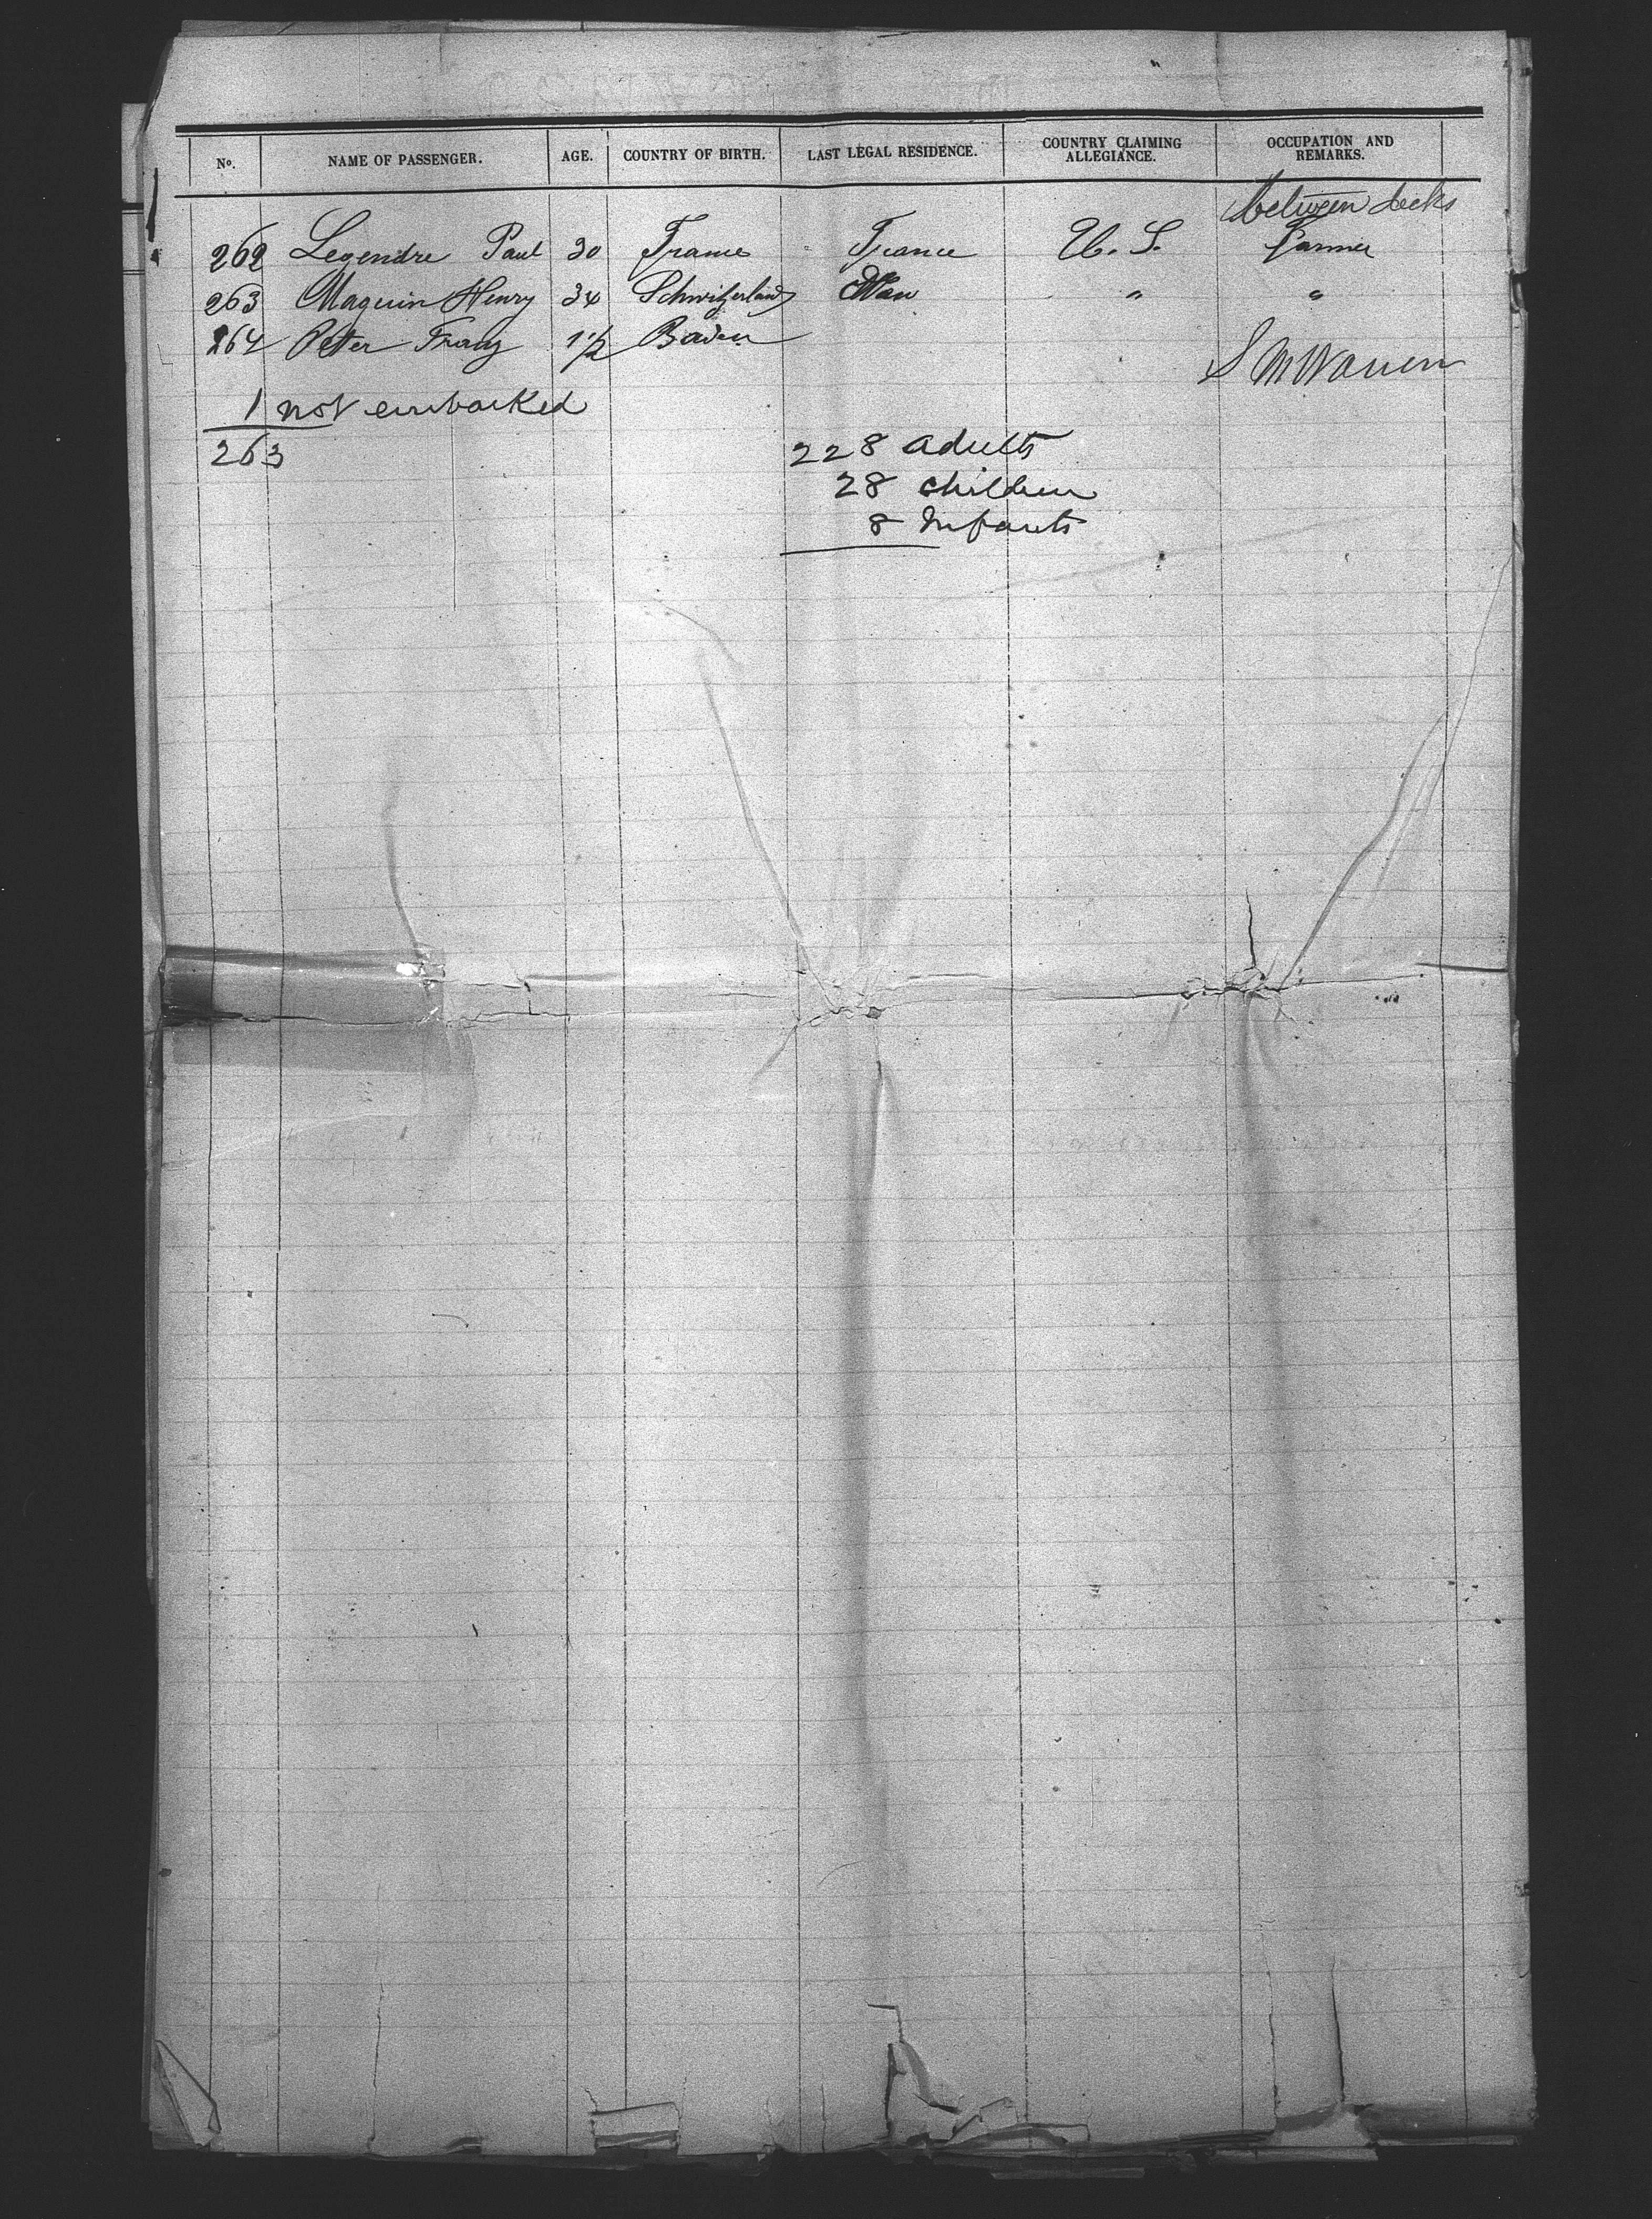 No. NAME OF PASSENGER. AGE. COUNTRY OF BIRTH. LAST LEGAL RESIDENCE. COUNTRY CLAIMING ALLEGIANCE. OCCUPATION AND REMARKS.
between decks
262 Legendre Paul 30 France France U. S. Farmer
263 Maguin Henry 34 Schwitzerland " "
264 Peter Franz 1 1/2 Baden
S M Warren
1 not embarked
263
228 adults
28 children
8 Infants